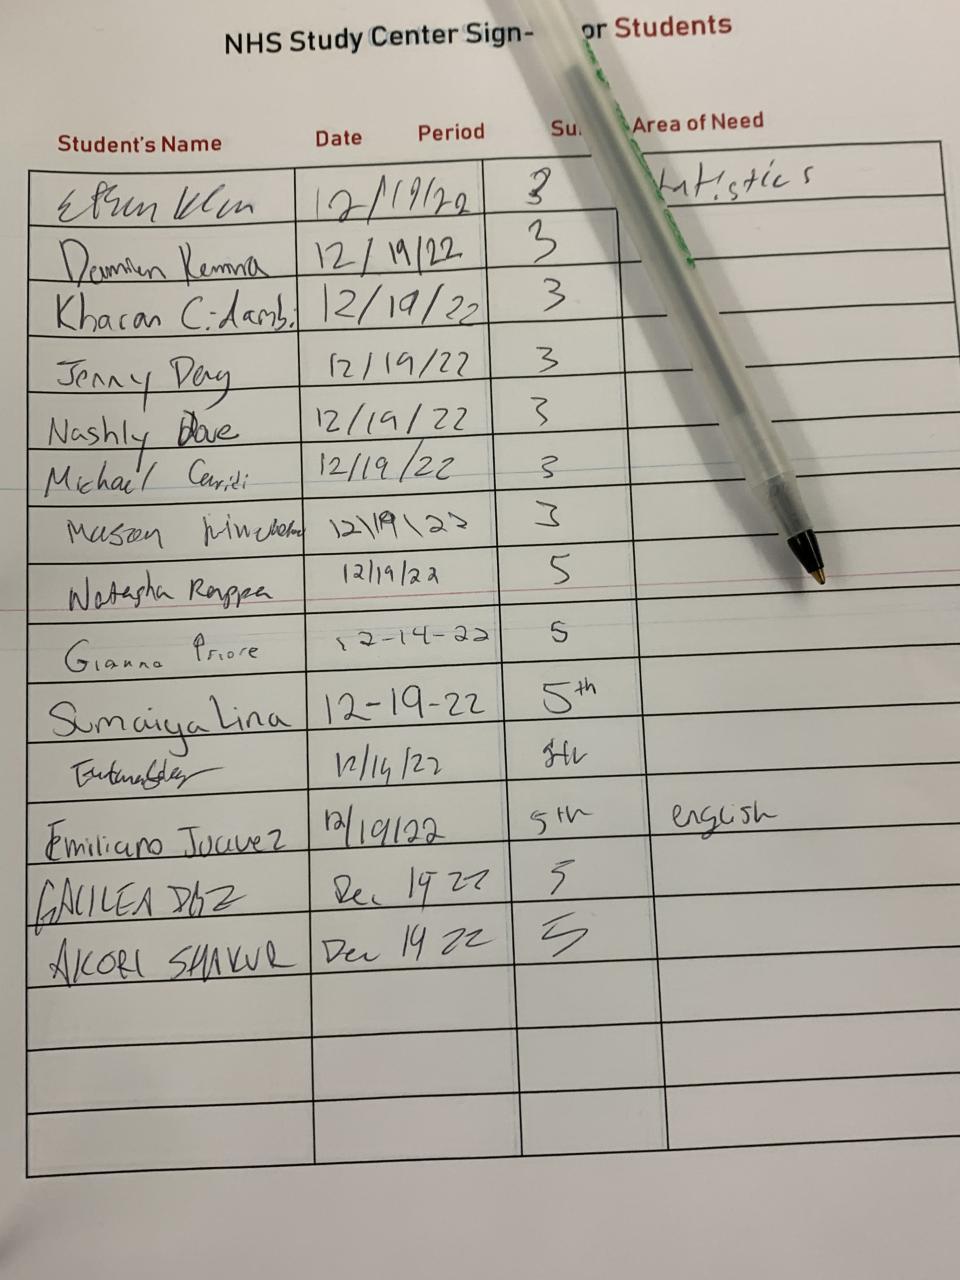 NHS Study Center Sign- or Students
Student's Name Date Period Su. Area of Need
12/19/22 3 tatistics
Damien Kenma 12/19/22 3
Khacan C.-damb. 12/19/22 3
Jenny Deng 12/19/22 3
Nashly 12/19/22 3
Michael 12/19/22 3
Mason 12\19\22 3
Natasha Rappa 12/19/22 5
Gianna Priore 12-14-22 5
Sumaiya Lina 12-19-22 5th
12/19/22
Emiliano Juavez 12/19/22 5th english
GALILEA DIAZ Dec 19 22 5
AKORI SHAKUR Dec 19 22 5